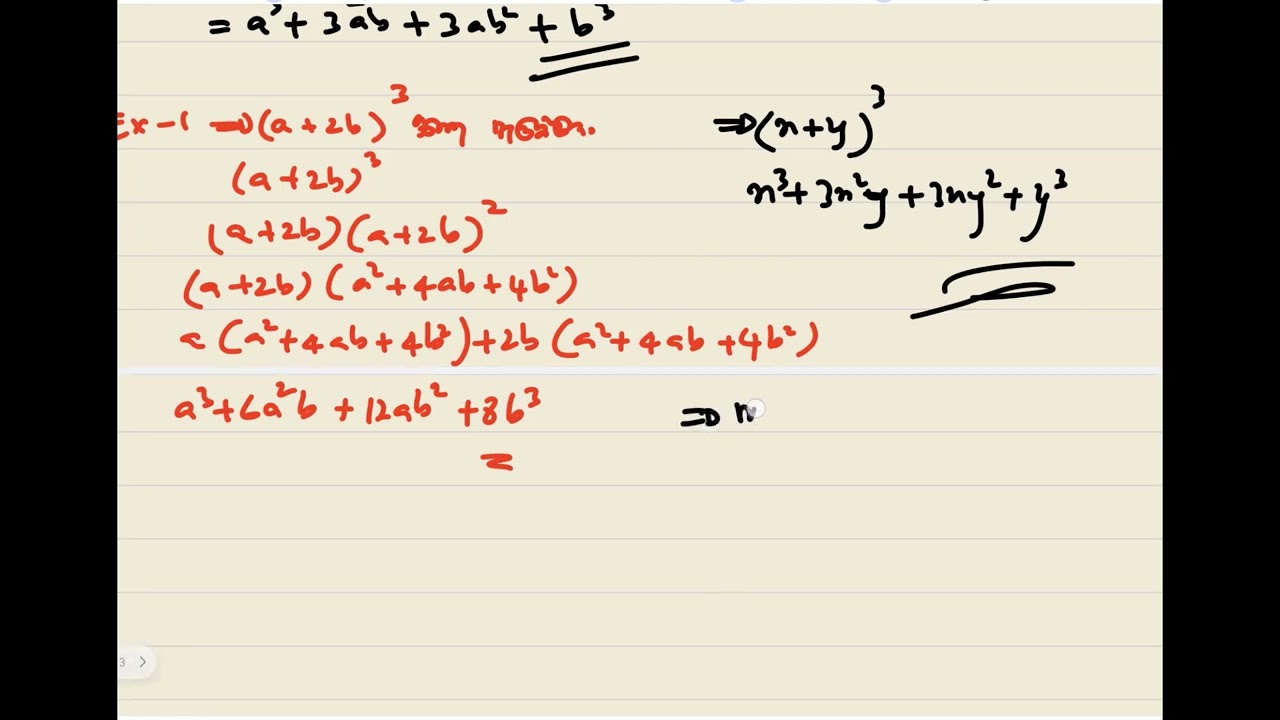 = a³ + 3a²b + 3ab² + b³
Ex-1 ⇒ (a+2b)³
(a+2b)³
(a+2b)(a+2b)²
(a+2b)(a²+4ab+4b²)
a(a²+4ab+4b²)+2b(a²+4ab+4b²)
a³+6a²b+12ab²+8b³
⇒(x+y)³
x³+3x²y+3xy²+y³
⇒
3